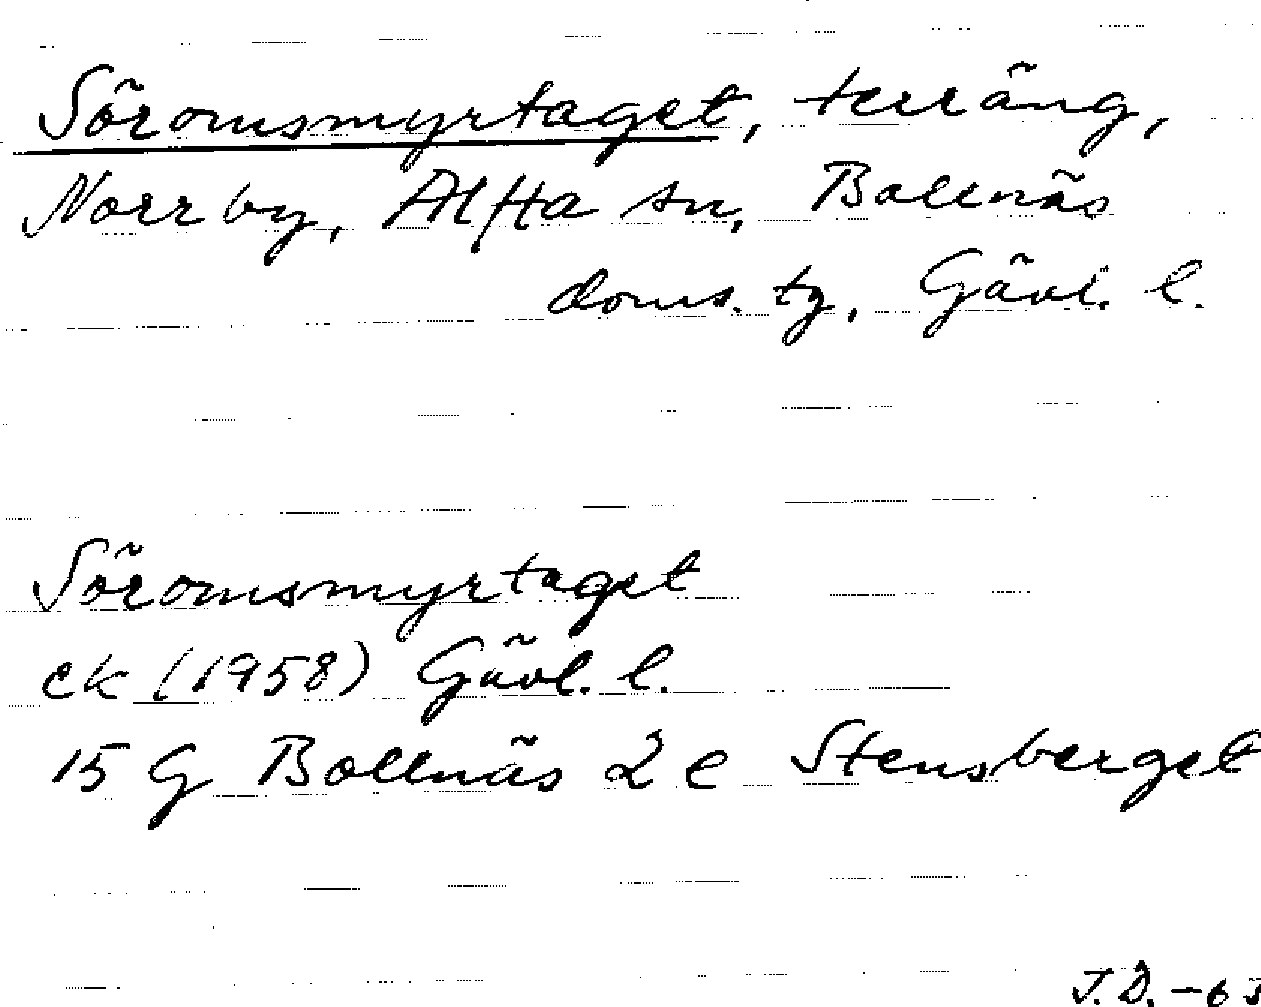 Söromsmyrtaget, terräng,
Norrby, Alfta sn, Bollnäs
doms. tg, Gävl. l.
Söromsmyrtaget
ek (1958) Gävl. l.
15 G Bollnäs 2 e Stensberget
J.D. -63